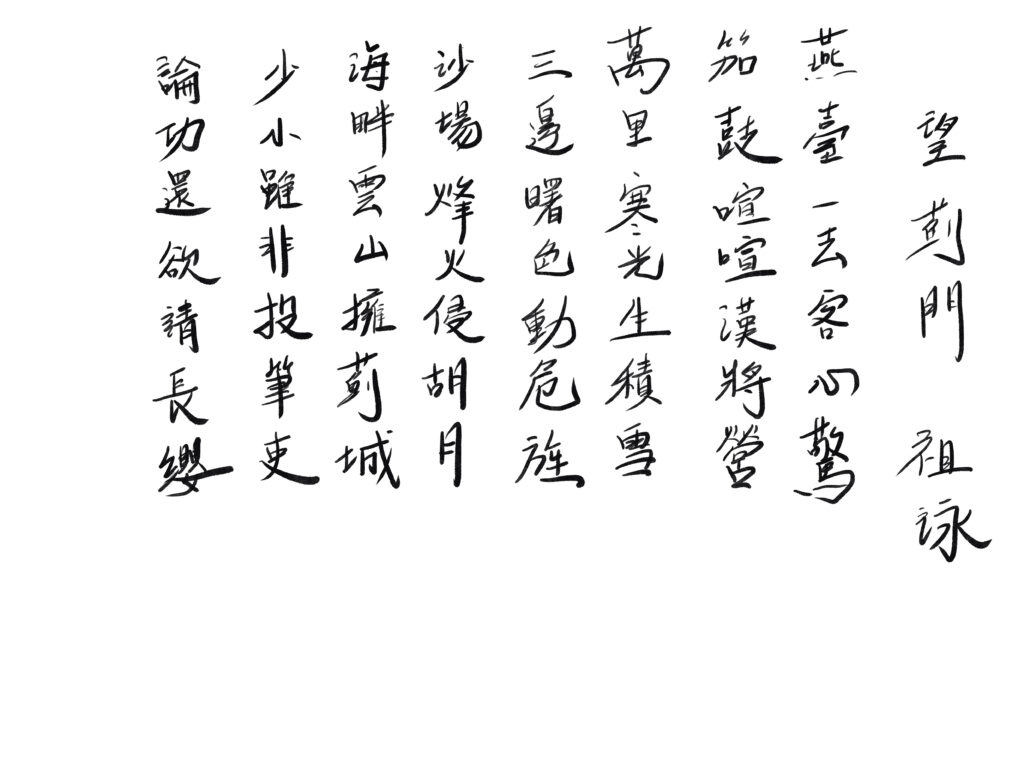 望薊門　祖詠
燕臺一去客心驚
笳鼓喧喧漢將營
萬里寒光生積雪
三邊曙色動危旌
沙場烽火侵胡月
海畔雲山擁薊城
少小雖非投筆吏
論功還欲請長纓